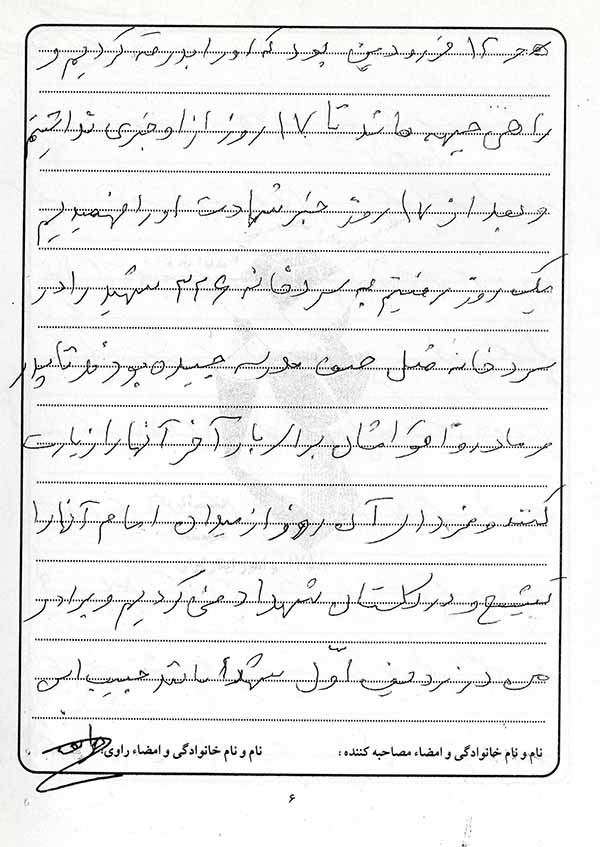 ۱۲ فروردین بود که او را بدرقه کردیم و
راهی جبهه ها شد تا ۱۷ روز از او خبری نداشتیم
و بعد از ۱۷ روز خبر شهادت او را فهمیدیم
یک روز رفتیم به سردخانه ۳۲۶ شهید را در
سردخانه مثل صف مدرسه چیده بودند تا پدر
و مادر و اقوامشان برای بار آخر آنها را زیارت
کنند و فردای آن روز از میدان امام آنها را
تشییع و در گلستان شهدا دفن کردیم و برادر
من در ردیف اول شهدا مانند حبیب ابن
نام و نام خانوادگی و امضاء مصاحبه کننده :
نام و نام خانوادگی و امضاء راوی:
۶